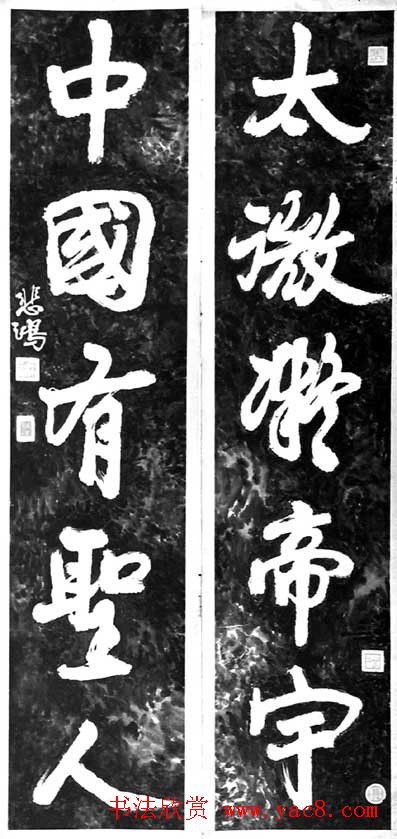 太微凝帝宇
中國有聖人
悲鴻
书法欣赏 www.yac8.com